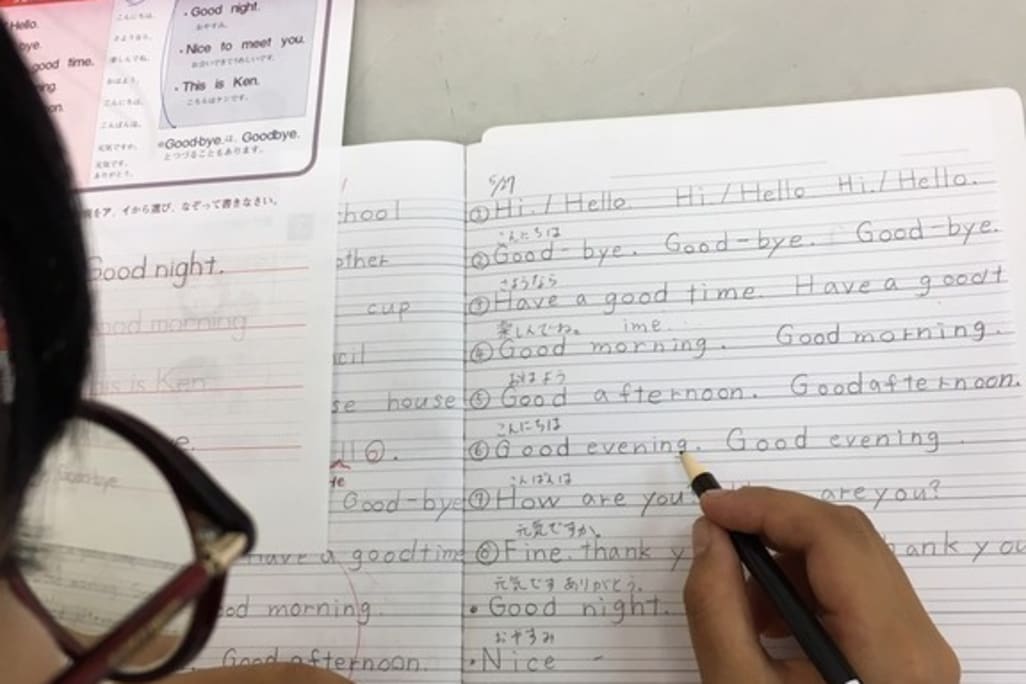 Hello.
bye.
good time.
ing.
on.
こんにちは。
さようなら。
楽しんでね。
おはよう。
こんにちは。
こんばんは。
元気ですか。
元気です。
ありがとう。
・Good night.
おやすみ。
・Nice to meet you.
お会いできてうれしいです。
・This is Ken.
こちらはケンです。
※Good-bye.は、Goodbye.
とつづることもあります。
をア、イから選び、なぞって書きなさい。
Good night.
Good morning
This is Ken
Goodbye
hool
other
cup
cil
se house
Good-bye
Have a good time
od morning.
Good afternoon.
5/27
①Hi. / Hello. Hi. / Hello Hi. / Hello.
こんにちは
②Good-bye. Good-bye. Good-bye.
さようなら
③Have a good time. Have a good t
楽しんでね。 ime.
④Good morning. Good morning.
おはよう
⑤Good afternoon. Good afternoon.
こんにちは
⑥Good evening. Good evening.
こんばんは
⑦How are you? are you?
元気ですか。
⑧Fine. thank y hank you
元気です ありがとう。
・Good night.
おやすみ
・Nice -